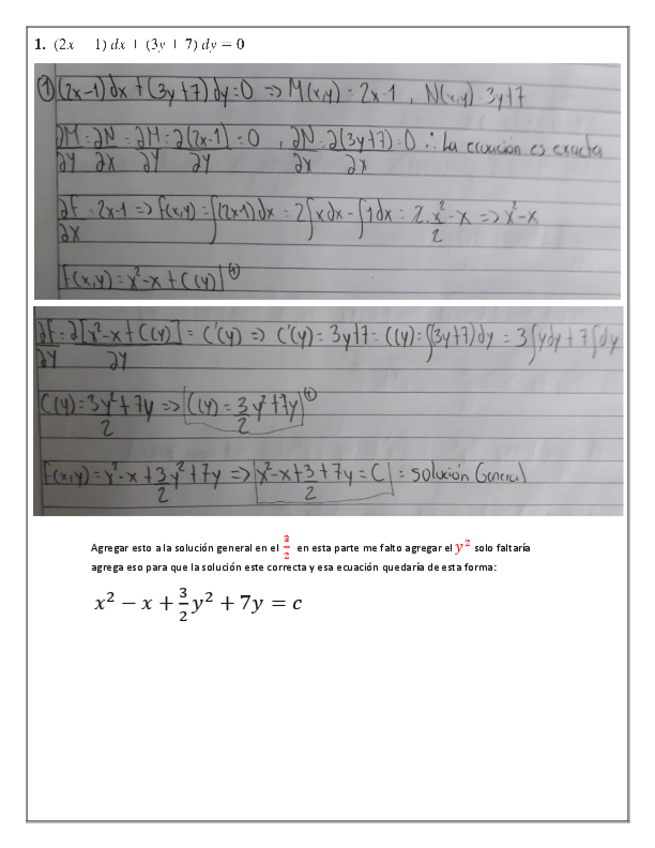 1. (2x   1) dx + (3y + 7) dy = 0
① (2x-1)dx + (3y+7)dy=0 => M(x,y) = 2x-1 , N(x,y) = 3y+7
∂M/∂y = ∂N/∂x = ∂M/∂y = ∂(2x-1)/∂y = 0 , ∂N/∂x = ∂(3y+7)/∂x = 0 ∴ La ecuación es exacta
∂F/∂x = 2x-1 => f(x,y) = ∫(2x-1)dx = 2∫xdx - ∫1dx = 2·x²/2 - x => x²-x
f(x,y) = x²-x + C(y)
∂F/∂y = ∂[x²-x+C(y)]/∂y = C'(y) => C'(y) = 3y+7 = C(y) = ∫(3y+7)dy = 3∫ydy + 7∫dy
C(y) = 3y²/2 + 7y => C(y) = 3/2 y² + 7y
F(x,y) = x²-x + 3y²/2 + 7y => x²-x+3/2+7y = C = Solución General
Agregar esto a la solución general en el 3/2 en esta parte me falto agregar el y² solo faltaría
agrega eso para que la solución este correcta y esa ecuación quedaría de esta forma:
x² − x + 3/2 y² + 7y = c